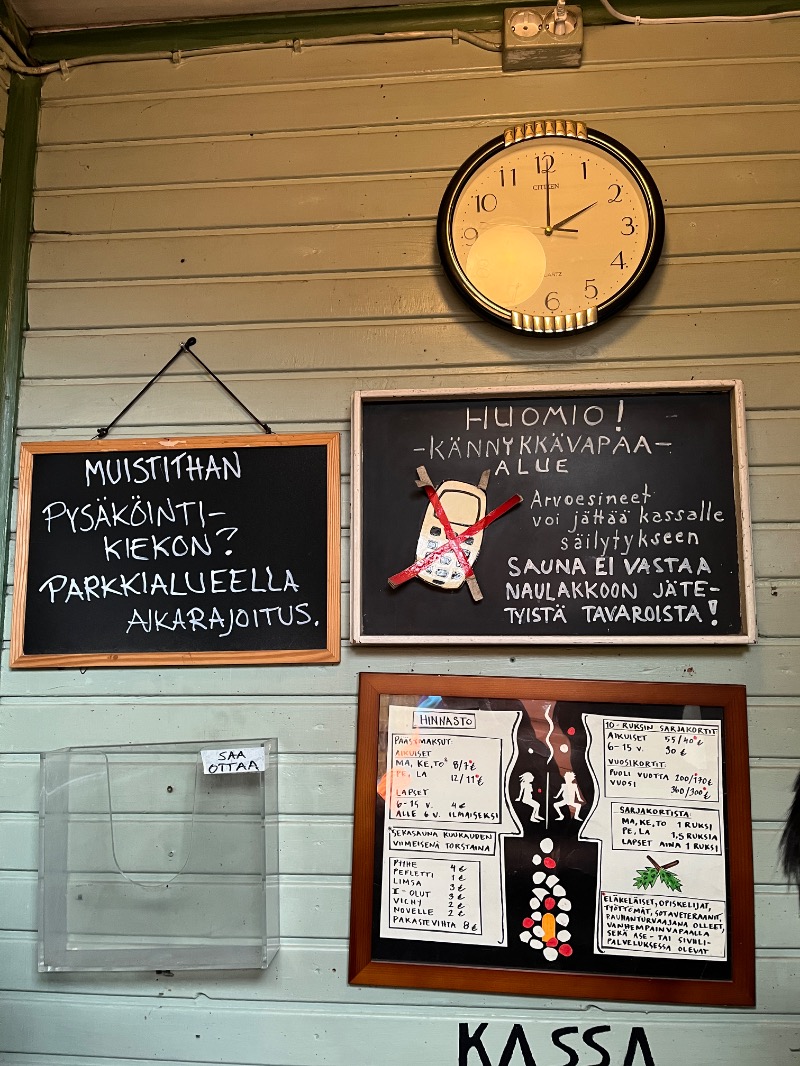 12
11
1
10
2
9
3
4
5
6
CITIZEN
QUARTZ
HUOMIO!
-KÄNNYKKÄVAPAA-
ALUE
Arvoesineet
voi jättää kassalle
säilytykseen
SAUNA EI VASTAA
NAULAKKOON JÄTE-
TYISTÄ TAVAROISTA!
MUISTITHAN
PYSÄKÖINTI-
KIEKON?
PARKKIALUEELLA
AIKARAJOITUS.
SAA
OTTAA
HINNASTO
PÄÄSYMAKSUT
AIKUISET
MA, KE, TO 8/7€
PE, LA 12/11€
LAPSET
6-15 V. 4€
ALLE 6 V. ILMAISEKSI
SEKASAUNA KUUKAUDEN
VIIMEISENÄ TORSTAINA
PYYHE 4€
PEFLETTI 1€
LIMSA 3€
I-OLUT 3€
VICHY 2€
NOVELLE 2€
PAKASTEVIHTA 8€
10-RUKSIN SARJAKORTIT
AIKUISET 55/40€
6-15 V. 30€
VUOSIKORTIT
PUOLI VUOTTA 200/170€
VUOSI 360/300€
SARJAKORTISTA
MA, KE, TO 1 RUKSI
PE, LA 1,5 RUKSIA
LAPSET AINA 1 RUKSI
ELÄKELÄISET, OPISKELIJAT,
TYÖTTÖMÄT, SOTAVETERAANIT,
RAUHANTURVAAJANA OLLEET,
VANHEMPAINVAPAALLA
SEKÄ ASE- TAI SIVIILI-
PALVELUKSESSA OLEVAT
KASSA